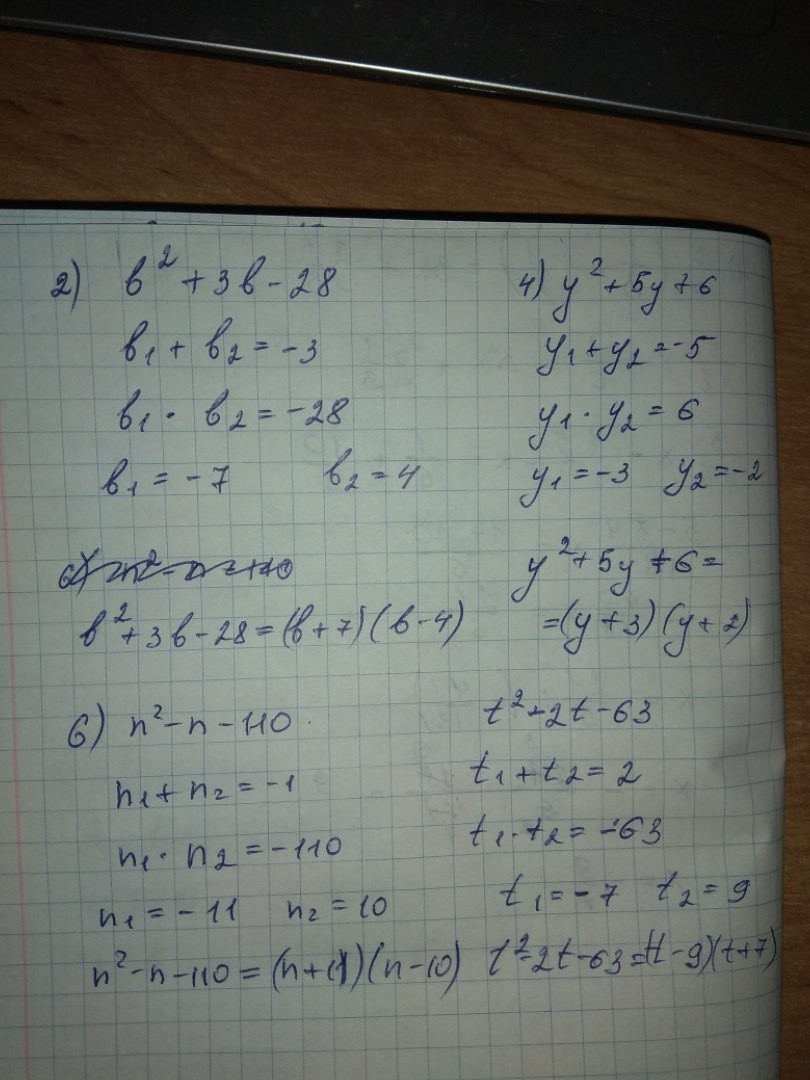 2) b² + 3b - 28
b₁ + b₂ = -3
b₁ · b₂ = -28
b₁ = -7 b₂ = 4
b² + 3b - 28 = (b + 7)(b - 4)
4) y² + 5y + 6
y₁ + y₂ = -5
y₁ · y₂ = 6
y₁ = -3 y₂ = -2
y² + 5y + 6 =
= (y + 3)(y + 2)
6) n² - n - 110
n₁ + n₂ = -1
n₁ · n₂ = -110
n₁ = -11 n₂ = 10
n² - n - 110 = (n + 11)(n - 10)
t² - 2t - 63
t₁ + t₂ = 2
t₁ · t₂ = -63
t₁ = -7 t₂ = 9
t² - 2t - 63 = (t - 9)(t + 7)